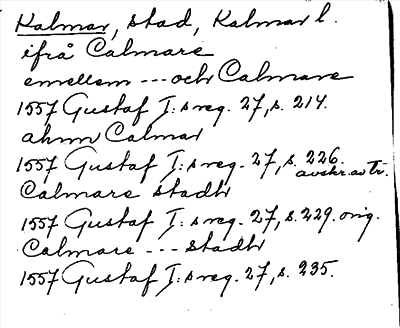 Kalmar, stad, Kalmar l.
ifrå Calmare
emellem --- och Calmare
1557 Gustaf I:s reg. 27, s. 214.
ahnn Calmar
1557 Gustaf I:s reg. 27, s. 226.
avskr. av tr.
Calmare stadh
1557 Gustaf I:s reg. 27, s. 229. orig.
Calmare --- stadh
1557 Gustaf I:s reg. 27, s. 235.